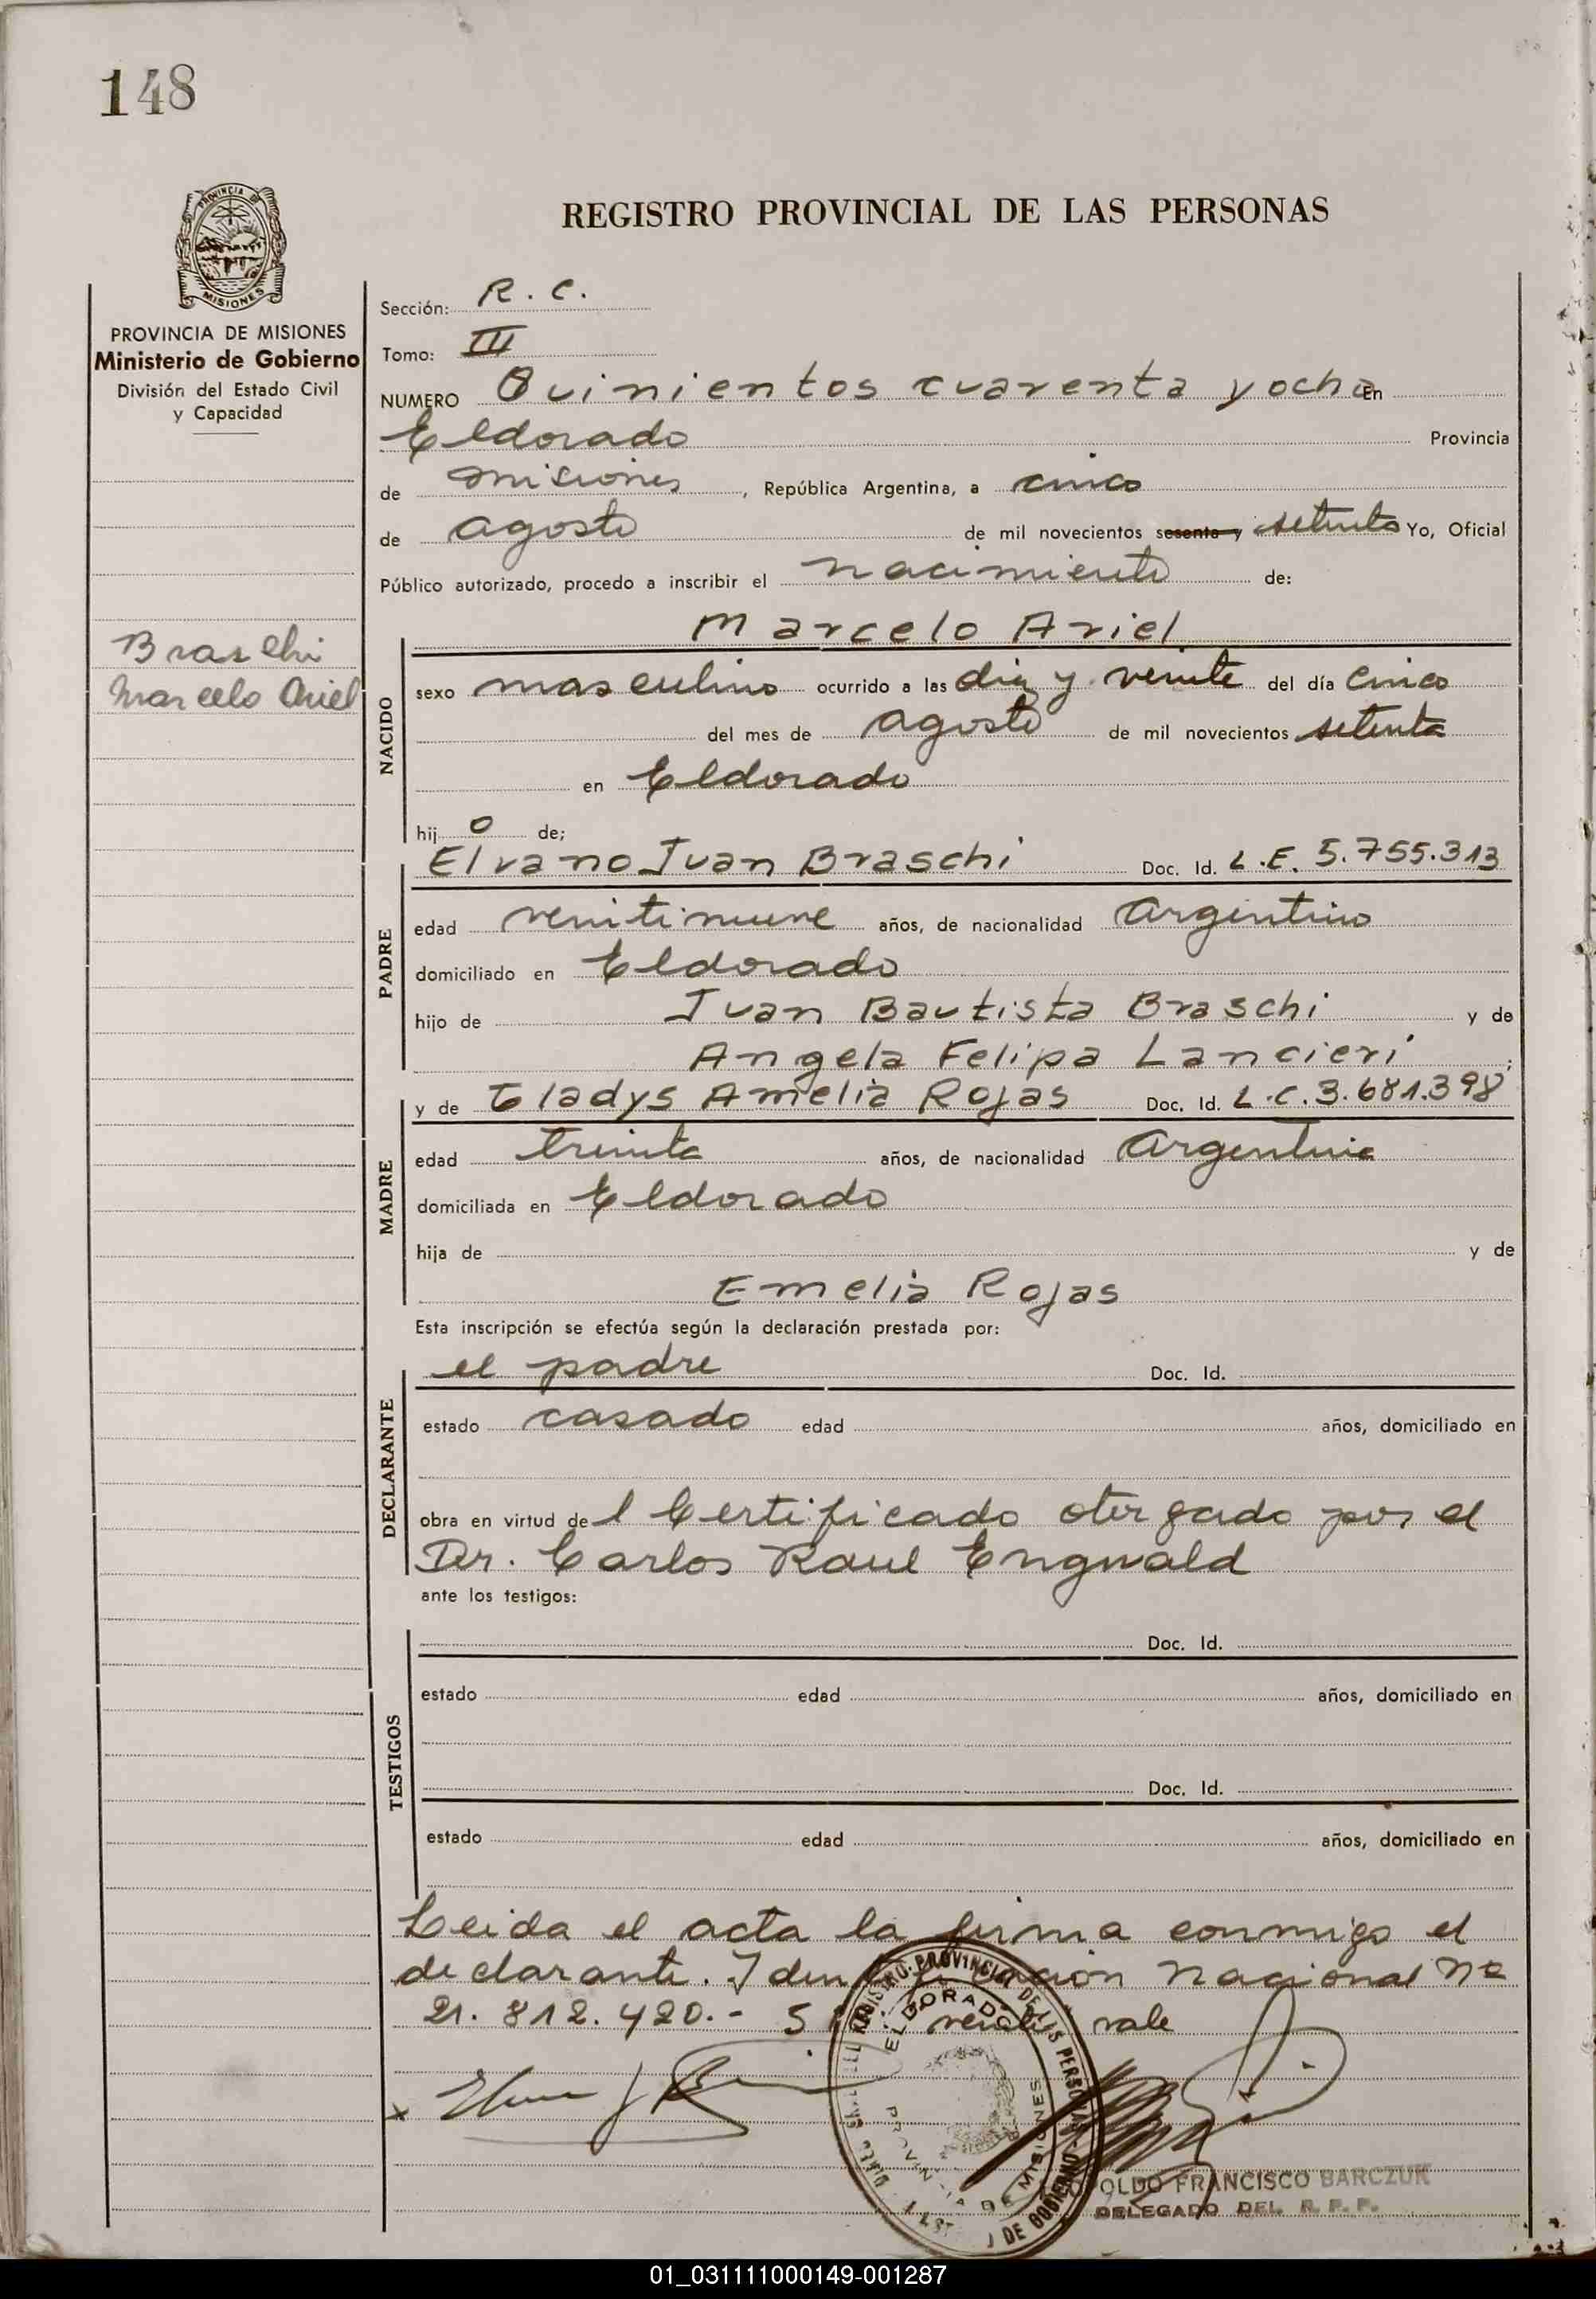 148
PROVINCIA DE
MISIONES
PROVINCIA DE MISIONES
Ministerio de Gobierno
División del Estado Civil
y Capacidad
Braschi
Marcelo Ariel
REGISTRO PROVINCIAL DE LAS PERSONAS
Sección: R. C.
Tomo: III
NUMERO Quinientos cuarenta y ocho En
Eldorado Provincia
de Misiones, República Argentina, a cinco
de agosto de mil novecientos sesenta y setenta Yo, Oficial
Público autorizado, procedo a inscribir el nacimiento de:
NACIDO
Marcelo Ariel
sexo masculino ocurrido a las diez y veinte del día cinco
del mes de agosto de mil novecientos setenta
en Eldorado
hij o de;
PADRE
Elvano Juan Braschi Doc. Id. L.E. 5.755.313
edad veintinueve años, de nacionalidad Argentino
domiciliado en Eldorado
hijo de Juan Bautista Braschi y de
Angela Felipa Lancieri;
MADRE
y de Gladys Amelia Rojas Doc. Id. L.C. 3.681.398
edad treinta años, de nacionalidad Argentina
domiciliada en Eldorado
hija de y de
Emelia Rojas
Esta inscripción se efectúa según la declaración prestada por:
DECLARANTE
el padre Doc. Id.
estado casado edad años, domiciliado en
obra en virtud del Certificado otorgado por el
Dr. Carlos Raul Engwald
ante los testigos:
TESTIGOS
Doc. Id.
estado edad años, domiciliado en
Doc. Id.
estado edad años, domiciliado en
Leida el acta la firma conmigo el
declarante. Identificación Nacional Nº
21.812.420.- vale
REGISTRO PROVINCIAL DE LAS PERSONAS
ELDORADO
PROVINCIA DE MISIONES
DE GOBIERNO
OLDO FRANCISCO BARCZUK
DELEGADO DEL R. P. P.
01_031111000149-001287